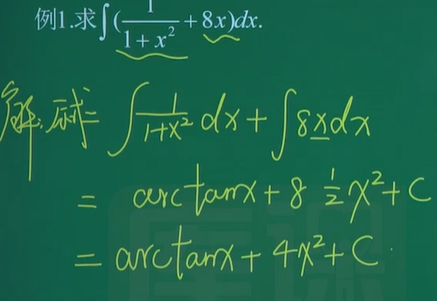 例1.求∫(1/(1+x²)+8x)dx.
解:原式=∫1/(1+x²)dx+∫8xdx
=arctanx+8 1/2 x²+C
=arctanx+4x²+C.